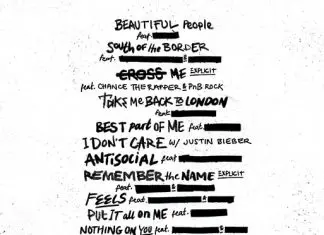 BEAUTIFUL People
feat.
South of the BORDER
feat. &
CROSS ME EXPLICIT
feat. CHANCE THE RAPPER & PnB ROCK
TAKE ME BACK To LONDON
feat.
BEST part OF ME feat.
I DON'T CARE w/ JUSTIN BIEBER
ANTISOCIAL feat
REMEMBER the NAME EXPLICIT
feat. &
FEELS feat. &
PUT IT all ON ME feat.
NOTHING ON YOU feat. &